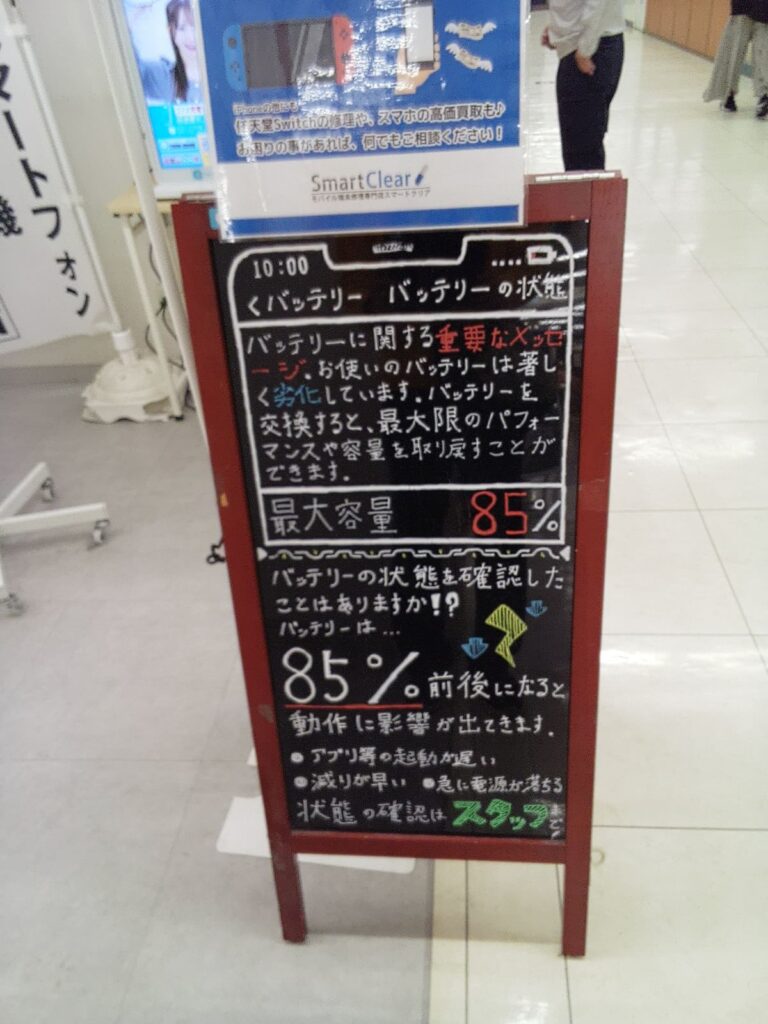 iPhoneの他にも
任天堂Switchの修理や、スマホの高価買取も♪
お困りの事があれば、何でもご相談ください！
SmartClear
モバイル端末修理専門店スマートクリア
マートフォン
10:00
くバッテリー　バッテリーの状態
バッテリーに関する重要なメッセ
ージ.お使いのバッテリーは著し
く劣化しています.バッテリーを
交換すると、最大限のパフォー
マンスや容量を取り戻すことが
できます.
最大容量 85%
バッテリーの状態を確認した
ことはありますか!?
バッテリーは...
85%前後になると
動作に影響が出てきます.
●アプリ等の起動が遅い
●減りが早い ●急に電源が落ちる
状態の確認はスタッフまで!